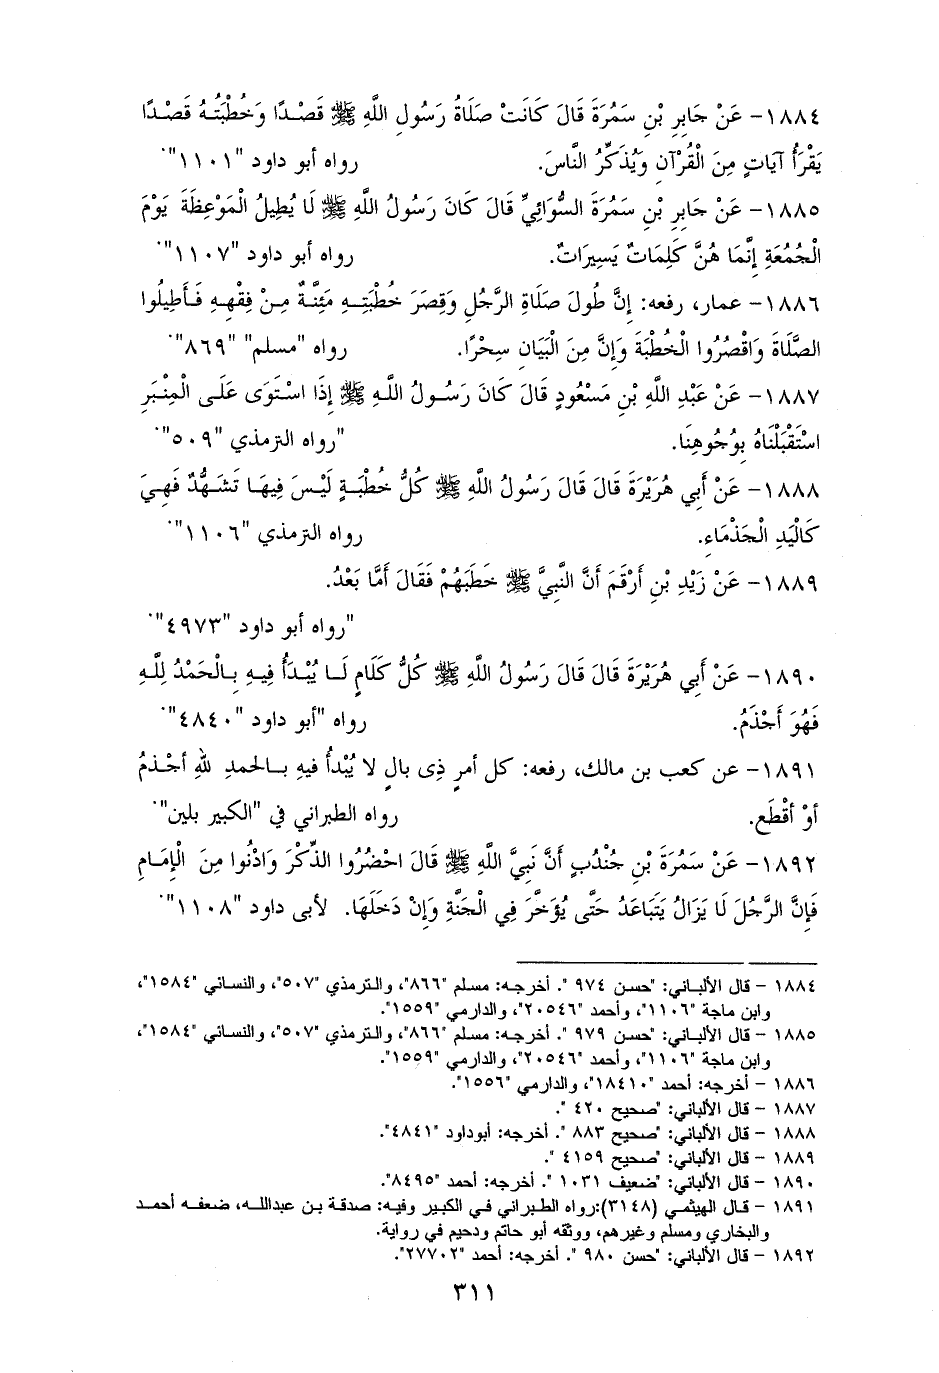 ١٨٨٤- عَنْ جَابِرِ بْنِ سَمُرَةَ قَالَ كَانَتْ صَلَاةُ رَسُولِ اللَّهِ ﷺ قَصْدًا وَخُطْبَتُهُ قَصْدًا
يَقْرَأُ آيَاتٍ مِنَ الْقُرْآنِ وَيُذَكِّرُ النَّاسَ. رواه أبو داود "١١٠١".
١٨٨٥- عَنْ جَابِرِ بْنِ سَمُرَةَ السُّوَائِيِّ قَالَ كَانَ رَسُولُ اللَّهِ ﷺ لَا يُطِيلُ الْمَوْعِظَةَ يَوْمَ
الْجُمُعَةِ إِنَّمَا هُنَّ كَلِمَاتٌ يَسِيرَاتٌ. رواه أبو داود "١١٠٧".
١٨٨٦- عمار، رفعه: إِنَّ طُولَ صَلَاةِ الرَّجُلِ وَقِصَرَ خُطْبَتِهِ مَئِنَّةٌ مِنْ فِقْهِهِ فَأَطِيلُوا
الصَّلَاةَ وَاقْصُرُوا الْخُطْبَةَ وَإِنَّ مِنَ الْبَيَانِ سِحْرًا. رواه "مسلم" "٨٦٩".
١٨٨٧- عَنْ عَبْدِ اللَّهِ بْنِ مَسْعُودٍ قَالَ كَانَ رَسُولُ اللَّهِ ﷺ إِذَا اسْتَوَى عَلَى الْمِنْبَرِ
اسْتَقْبَلْنَاهُ بِوُجُوهِنَا. "رواه الترمذي "٥٠٩".
١٨٨٨- عَنْ أَبِي هُرَيْرَةَ قَالَ قَالَ رَسُولُ اللَّهِ ﷺ كُلُّ خُطْبَةٍ لَيْسَ فِيهَا تَشَهُّدٌ فَهِيَ
كَالْيَدِ الْجَذْمَاءِ. رواه الترمذي "١١٠٦".
١٨٨٩- عَنْ زَيْدِ بْنِ أَرْقَمَ أَنَّ النَّبِيَّ ﷺ خَطَبَهُمْ فَقَالَ أَمَّا بَعْدُ.
"رواه أبو داود "٤٩٧٣".
١٨٩٠- عَنْ أَبِي هُرَيْرَةَ قَالَ قَالَ رَسُولُ اللَّهِ ﷺ كُلُّ كَلَامٍ لَا يُبْدَأُ فِيهِ بِالْحَمْدُ لِلَّهِ
فَهُوَ أَجْذَمُ. رواه "أبو داود "٤٨٤٠".
١٨٩١- عن كعب بن مالك، رفعه: كل أمرٍ ذِى بالٍ لا يُبْدأُ فيهِ بالحمدِ للهِ أجْذمُ
أوْ أقْطَع. رواه الطبراني في "الكبير بلين".
١٨٩٢- عَنْ سَمُرَةَ بْنِ جُنْدُبٍ أَنَّ نَبِيَّ اللَّهِ ﷺ قَالَ احْضُرُوا الذِّكْرَ وَادْنُوا مِنَ الْإِمَامِ
فَإِنَّ الرَّجُلَ لَا يَزَالُ يَتَبَاعَدُ حَتَّى يُؤَخَّرَ فِي الْجَنَّةِ وَإِنْ دَخَلَهَا. لأبى داود "١١٠٨".
١٨٨٤ - قال الألباني: "حسن ٩٧٤ ". أخرجه: مسلم "٨٦٦"، والترمذي "٥٠٧"، والنسائي "١٥٨٤"،
وابن ماجة "١١٠٦"، وأحمد "٢٠٥٤٦"، والدارمي "١٥٥٩".
١٨٨٥ - قال الألباني: "حسن ٩٧٩ ". أخرجه: مسلم "٨٦٦"، والترمذي "٥٠٧"، والنسائي "١٥٨٤"،
وابن ماجة "١١٠٦"، وأحمد "٢٠٥٤٦"، والدارمي "١٥٥٩".
١٨٨٦ - أخرجه: أحمد "١٨٤١٠"، والدارمي "١٥٥٦".
١٨٨٧ - قال الألباني: "صحيح ٤٢٠ ".
١٨٨٨ - قال الألباني: "صحيح ٨٨٣ ". أخرجه: أبوداود "٤٨٤١".
١٨٨٩ - قال الألباني: "صحيح ٤١٥٩ ".
١٨٩٠ - قال الألباني: "ضعيف ١٠٣١ ". أخرجه: أحمد "٨٤٩٥".
١٨٩١ - قال الهيثمي (٣١٤٨):رواه الطبراني في الكبير وفيه: صدقة بن عبدالله، ضعفه أحمد
والبخاري ومسلم وغيرهم، ووثقه أبو حاتم ودحيم في رواية.
١٨٩٢ - قال الألباني: "حسن ٩٨٠ ". أخرجه: أحمد "٢٧٧٠٢".
٣١١